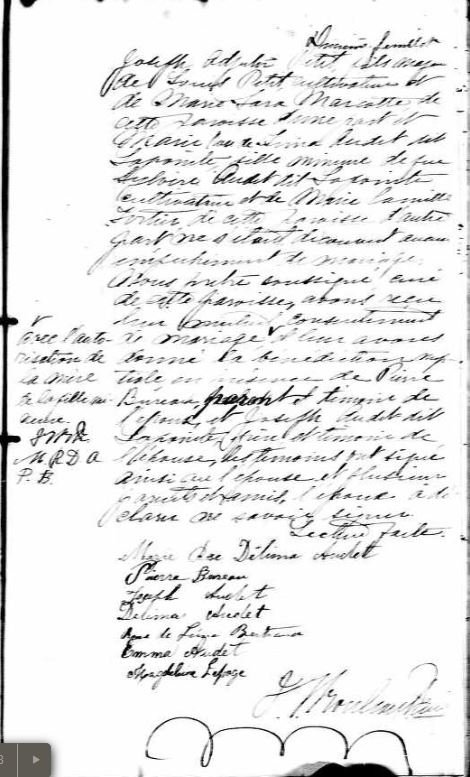 Dernier feuillet
Joseph Petit fils majeur
de Louis Petit, cultivateur et
de Marie Marcotte de
cette paroisse d'une part et
Marie Audet dit
Lapointe, fille mineure de feu
Audet dit Lapointe
cultivateur et de Marie Camille
Fortier de cette paroisse d'autre
part ne s'étant découvert aucun
empêchement de mariage,
Nous prêtre soussigné curé
de cette paroisse, avons reçu
leur mutuel consentement
de mariage et leur avons
donné la bénédiction nup
tiale, en présence de Pierre
Bureau témoin de
l'époux, et Joseph Audet dit
Lapointe, témoin de
l'épouse, les témoins ont signé
ainsi que l'épouse et plusieurs
parents et amis, l'époux a dé
claré ne savoir signer
Lecture faite.
avec l'auto
risation de
la mère
de la fille mi
neure.
M R D A
P. B.
Marie Délima Audet
Pierre Bureau
Joseph Audet
Délima Audet
Emma Audet
Magdeleine Lepage